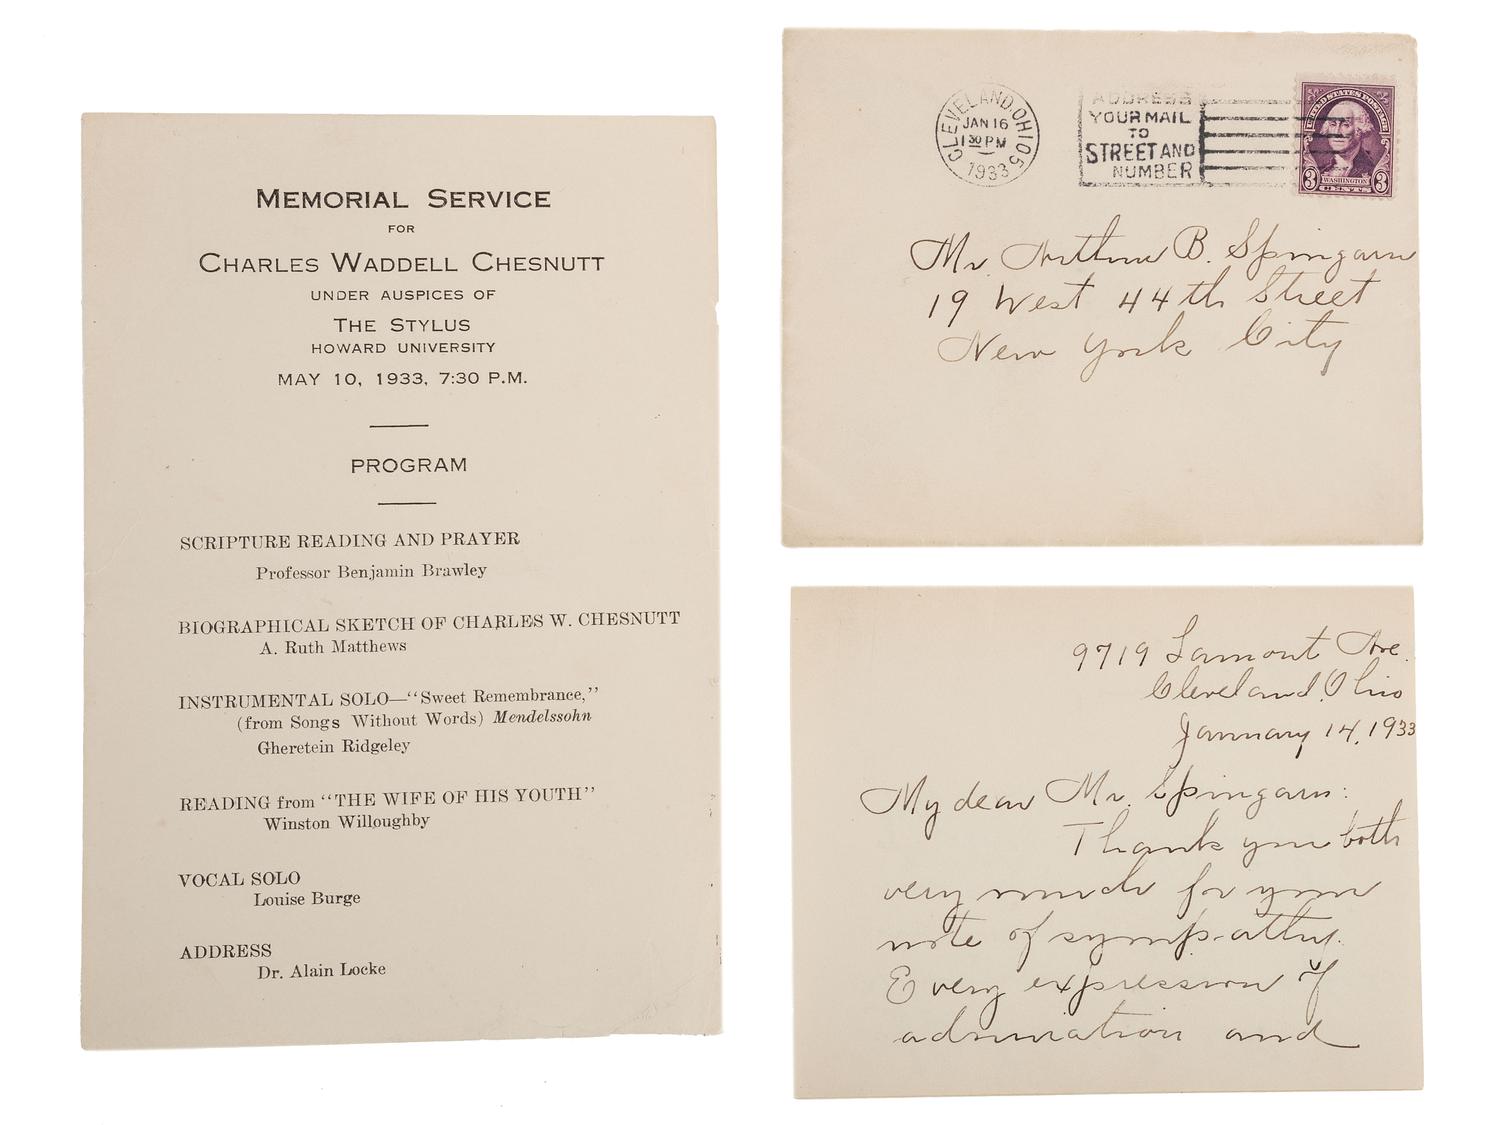 MEMORIAL SERVICE
FOR
CHARLES WADDELL CHESNUTT
UNDER AUSPICES OF
THE STYLUS
HOWARD UNIVERSITY
MAY 10, 1933, 7:30 P.M.
PROGRAM
SCRIPTURE READING AND PRAYER
Professor Benjamin Brawley
BIOGRAPHICAL SKETCH OF CHARLES W. CHESNUTT
A. Ruth Matthews
INSTRUMENTAL SOLO—“Sweet Remembrance,”
(from Songs Without Words) Mendelssohn
Gheretein Ridgeley
READING from “THE WIFE OF HIS YOUTH”
Winston Willoughby
VOCAL SOLO
Louise Burge
ADDRESS
Dr. Alain Locke
CLEVELAND, OHIO 5
JAN 16
1 30 PM
1933
ADDRESS
YOUR MAIL
TO
STREET AND
NUMBER
UNITED STATES POSTAGE
WASHINGTON
3 CENTS 3
Mr. Arthur B. Spingarn
19 West 44th Street
New York City
9719 Lamont Ave.
Cleveland, Ohio
January 14, 1933
My dear Mr. Spingarn:
Thank you both
very much for your
note of sympathy.
Every expression of
admiration and